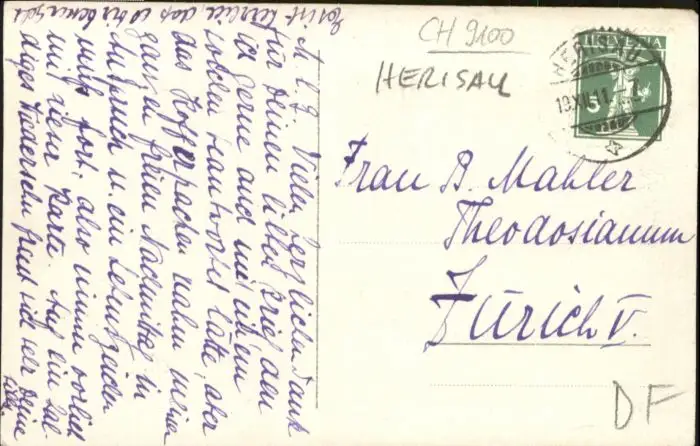 CH 9100
HERISAU
HELVETIA
5
HERISAU
19.XII.11.-7
Frau B. Mahler
Theodosianum
Zürich V.
DF
M. l. B. Vielen herzlichen Dank
für Deinen lieben Brief, den
ich gerne auch mit einem
solchen beantwortet hätte, aber
das Kofferpacken nahm meinen
ganzen freien Nachmittag in
Anspruch u. ein Lebenszeichen
muss fort, also nimm vorlieb
mit einer Karte. Auf ein bal-
diges Wiedersehn freut sich sehr Deine